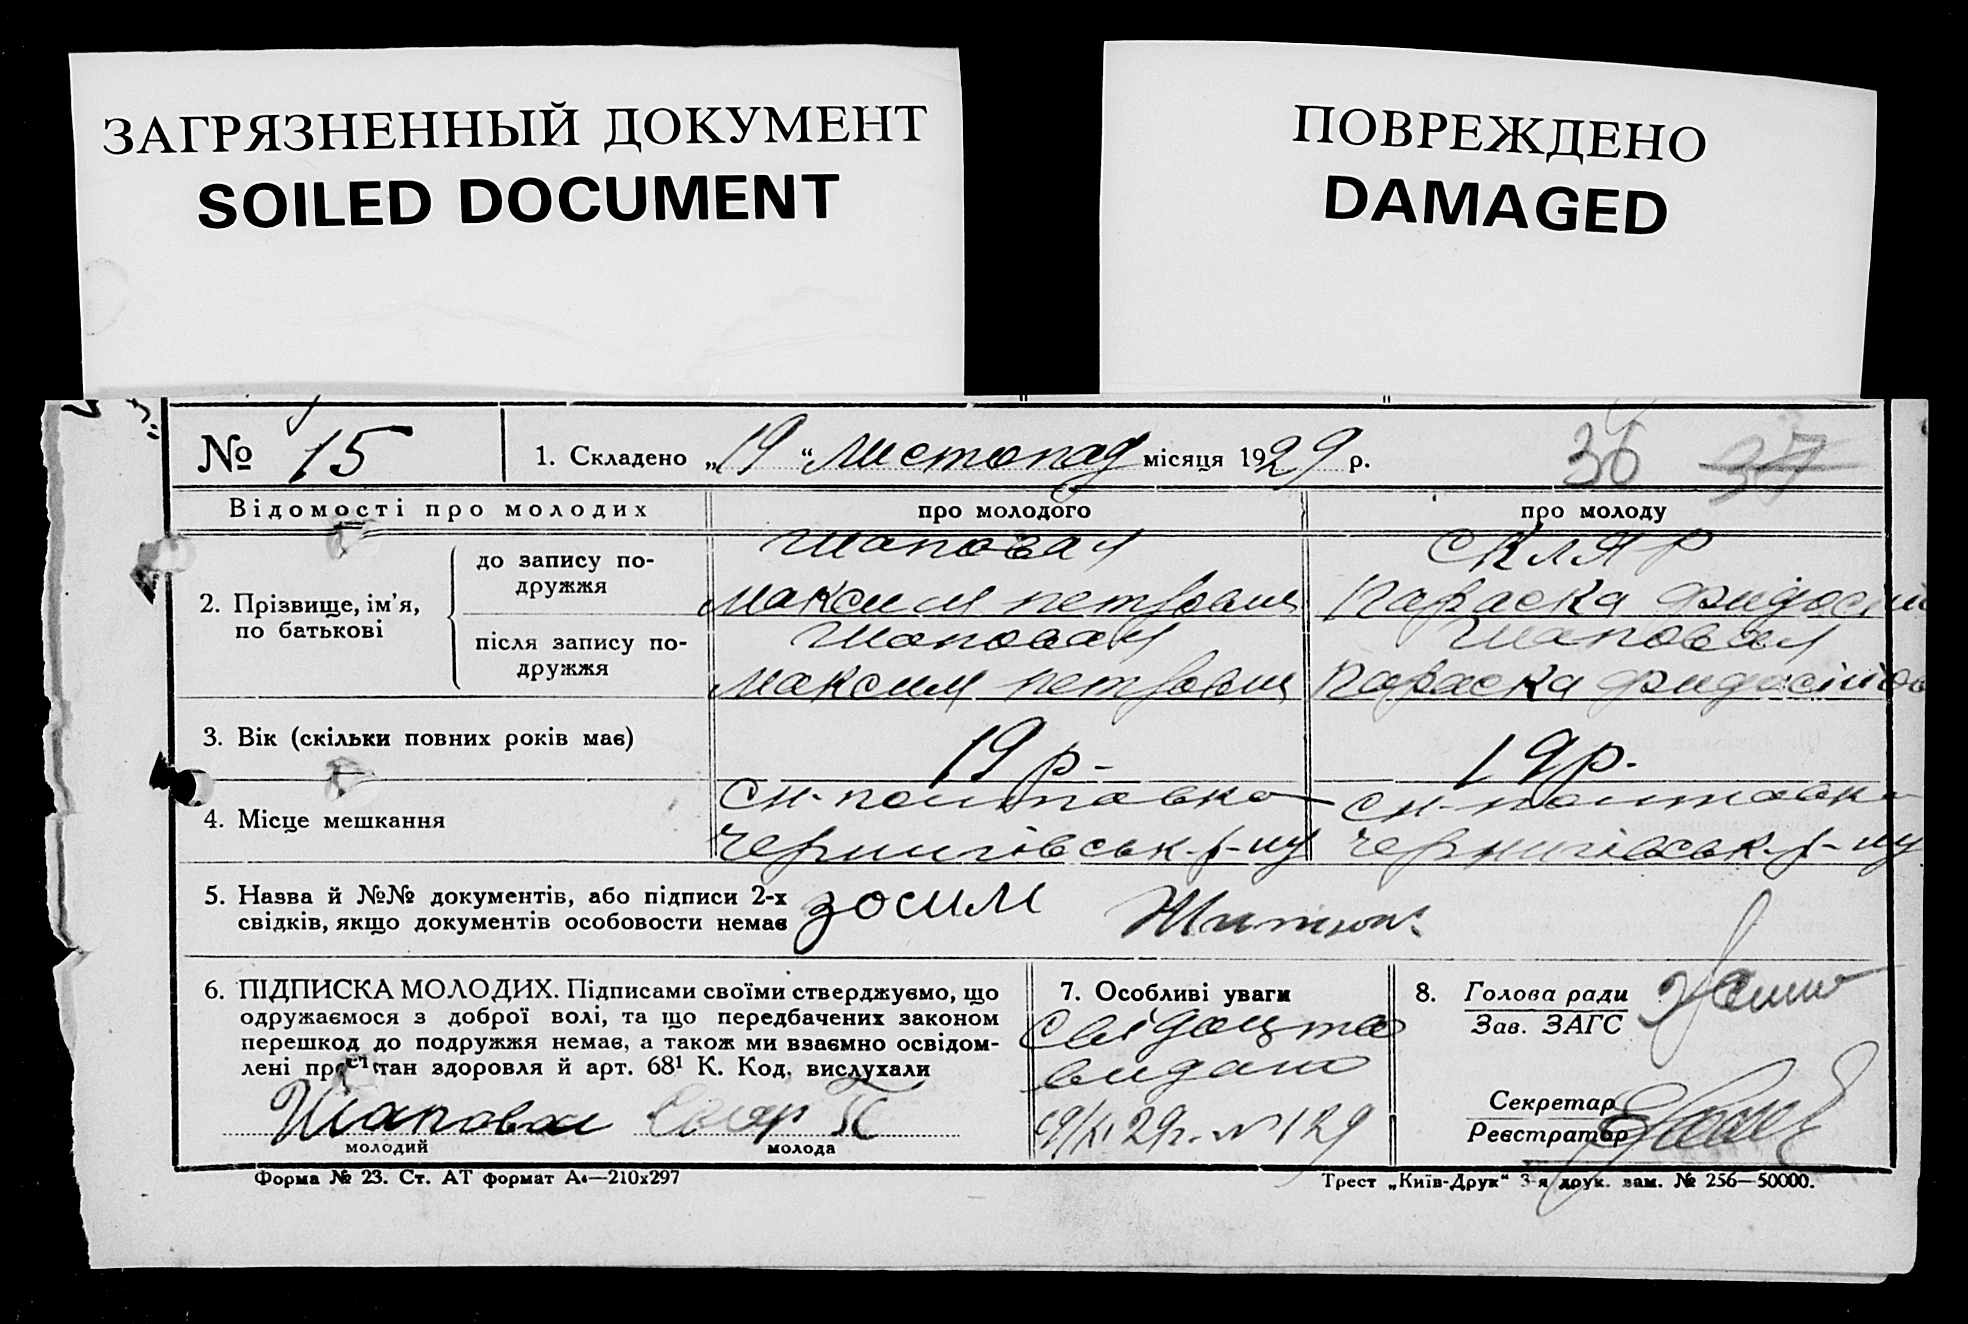 ЗАГРЯЗНЕННЫЙ ДОКУМЕНТ
SOILED DOCUMENT
ПОВРЕЖДЕНО
DAMAGED
№ 15
1. Складено „19“ листопад місяця 1929 р.
36 37
Відомості про молодих
про молодого
про молоду
2. Прізвище, ім’я, по батькові
до запису подружжя
Шаповал
Максим Петрович
Скляр
Параска
після запису подружжя
Шаповал
Максим Петрович
Шаповал
Параска
3. Вік (скільки повних років має)
19 р-
19 р.
4. Місце мешкання
Чернигівськ. р-ну
Чернигівськ. р-ну
5. Назва й №№ документів, або підписи 2-х
свідків, якщо документів особовости немає
Зосим
6. ПІДПИСКА МОЛОДИХ. Підписами своїми стверджуємо, що
одружаємося з доброї волі, та що передбачених законом
перешкод до подружжя немає, а також ми взаємно освідом-
лені про стан здоровля й арт. 68¹ К. Код. вислухали
Шаповал
молодий
молода
7. Особливі уваги
Свідоцтво
видано
19/XI 29р. N 129
8. Голова ради
Зав. ЗАГС
Секретар
Реєстратор
Форма № 23. Ст. АТ формат А₄—210х297
Трест „Київ-Друк“ 3-я друк. зам. № 256—50000.